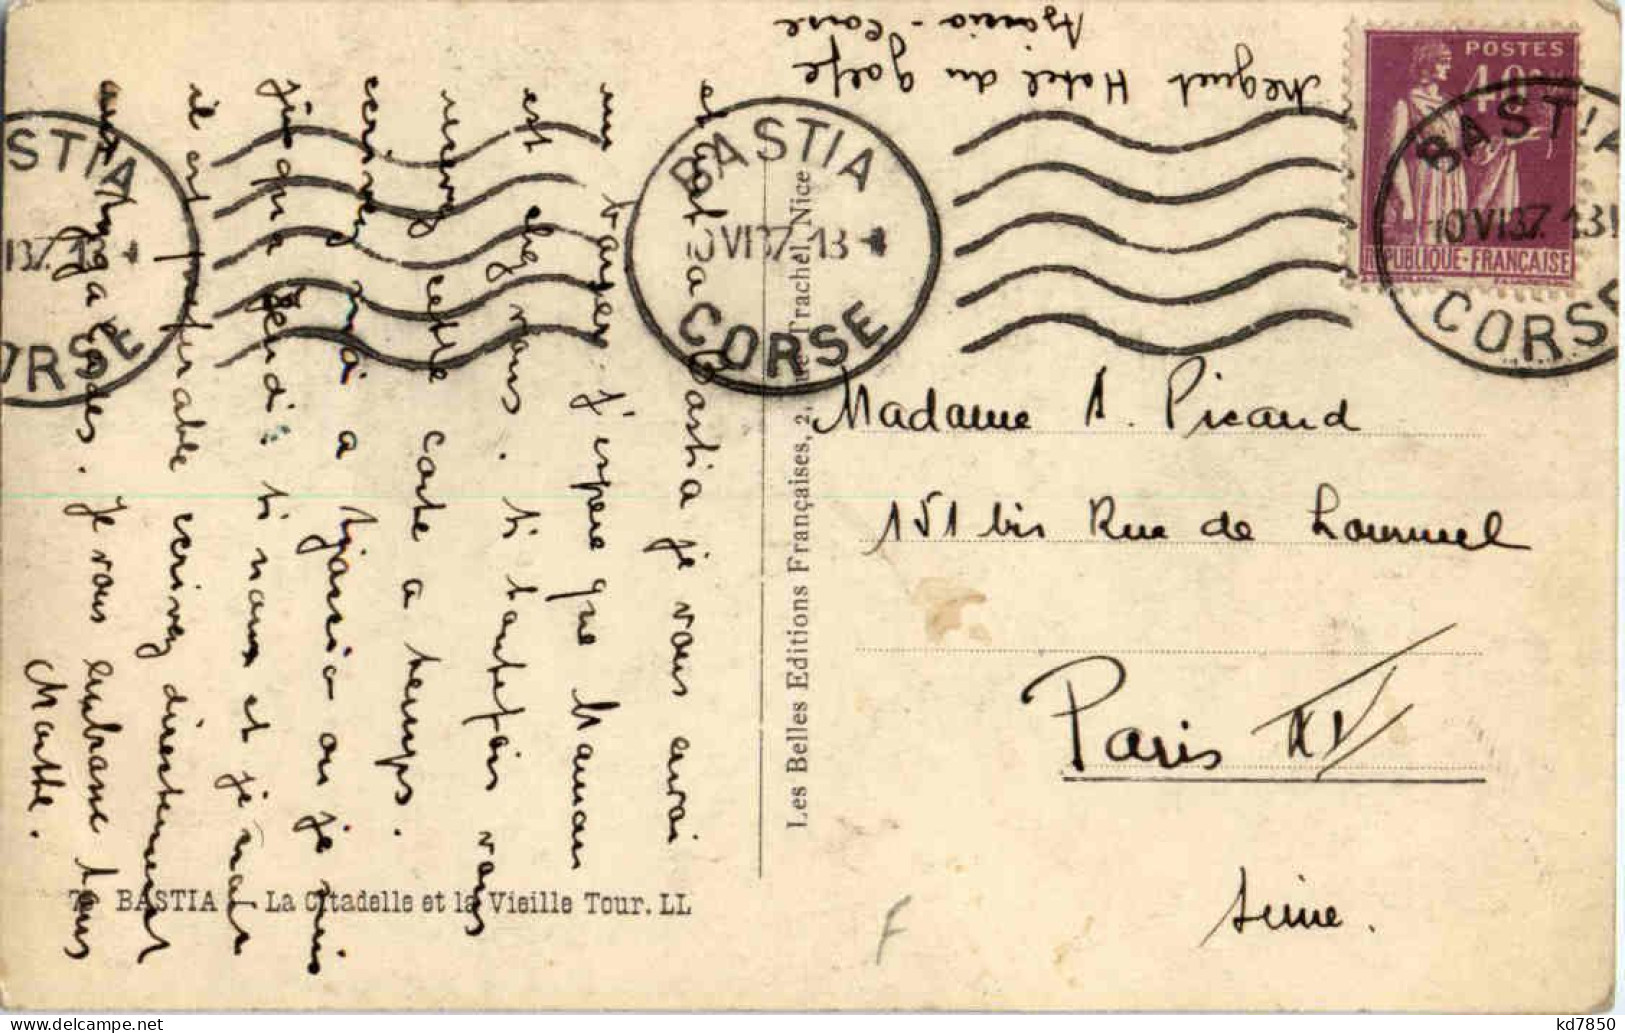 Méguet Hotel du golfe
Ajaccio - Corse
POSTES
40c
REPUBLIQUE-FRANÇAISE
BASTIA
10 VI 37 13
CORSE
BASTIA
10 VI 37. 13
CORSE
BASTIA
VI 37. 13
CORSE
et à Bastia je vous envoi
un baiser. J'espère que Maman
est chez vous. Si toutefois vous
recevez cette carte à temps.
écrivez moi à Ajaccio où je suis
jusque Jeudi. Si non
il est préférable écrivez directement
aux Engalades. Je vous embrasse tous
Marthe.
Madame A. Picaud
151 bis Rue de Lourmel
Paris XV
Seine.
Les Belles Editions Françaises, 2, Rue Trachel, Nice
BASTIA - La Citadelle et la Vieille Tour. LL
F
kd7850